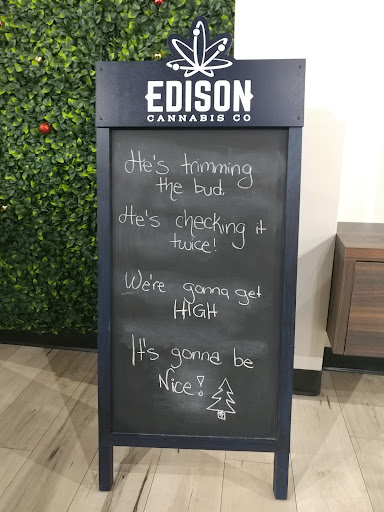 EDISON
CANNABIS CO
He's trimming
the bud.
He's checking it
twice!
We're gonna get
HIGH
It's gonna be
Nice!